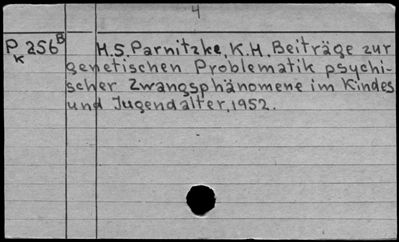 4
P 256 B H.S. Parnitzke, K.H. Beiträge zur
K genetischen Problematik psychi-
scher Zwangsphänomene im Kindes
und Jugendalter, 1952.